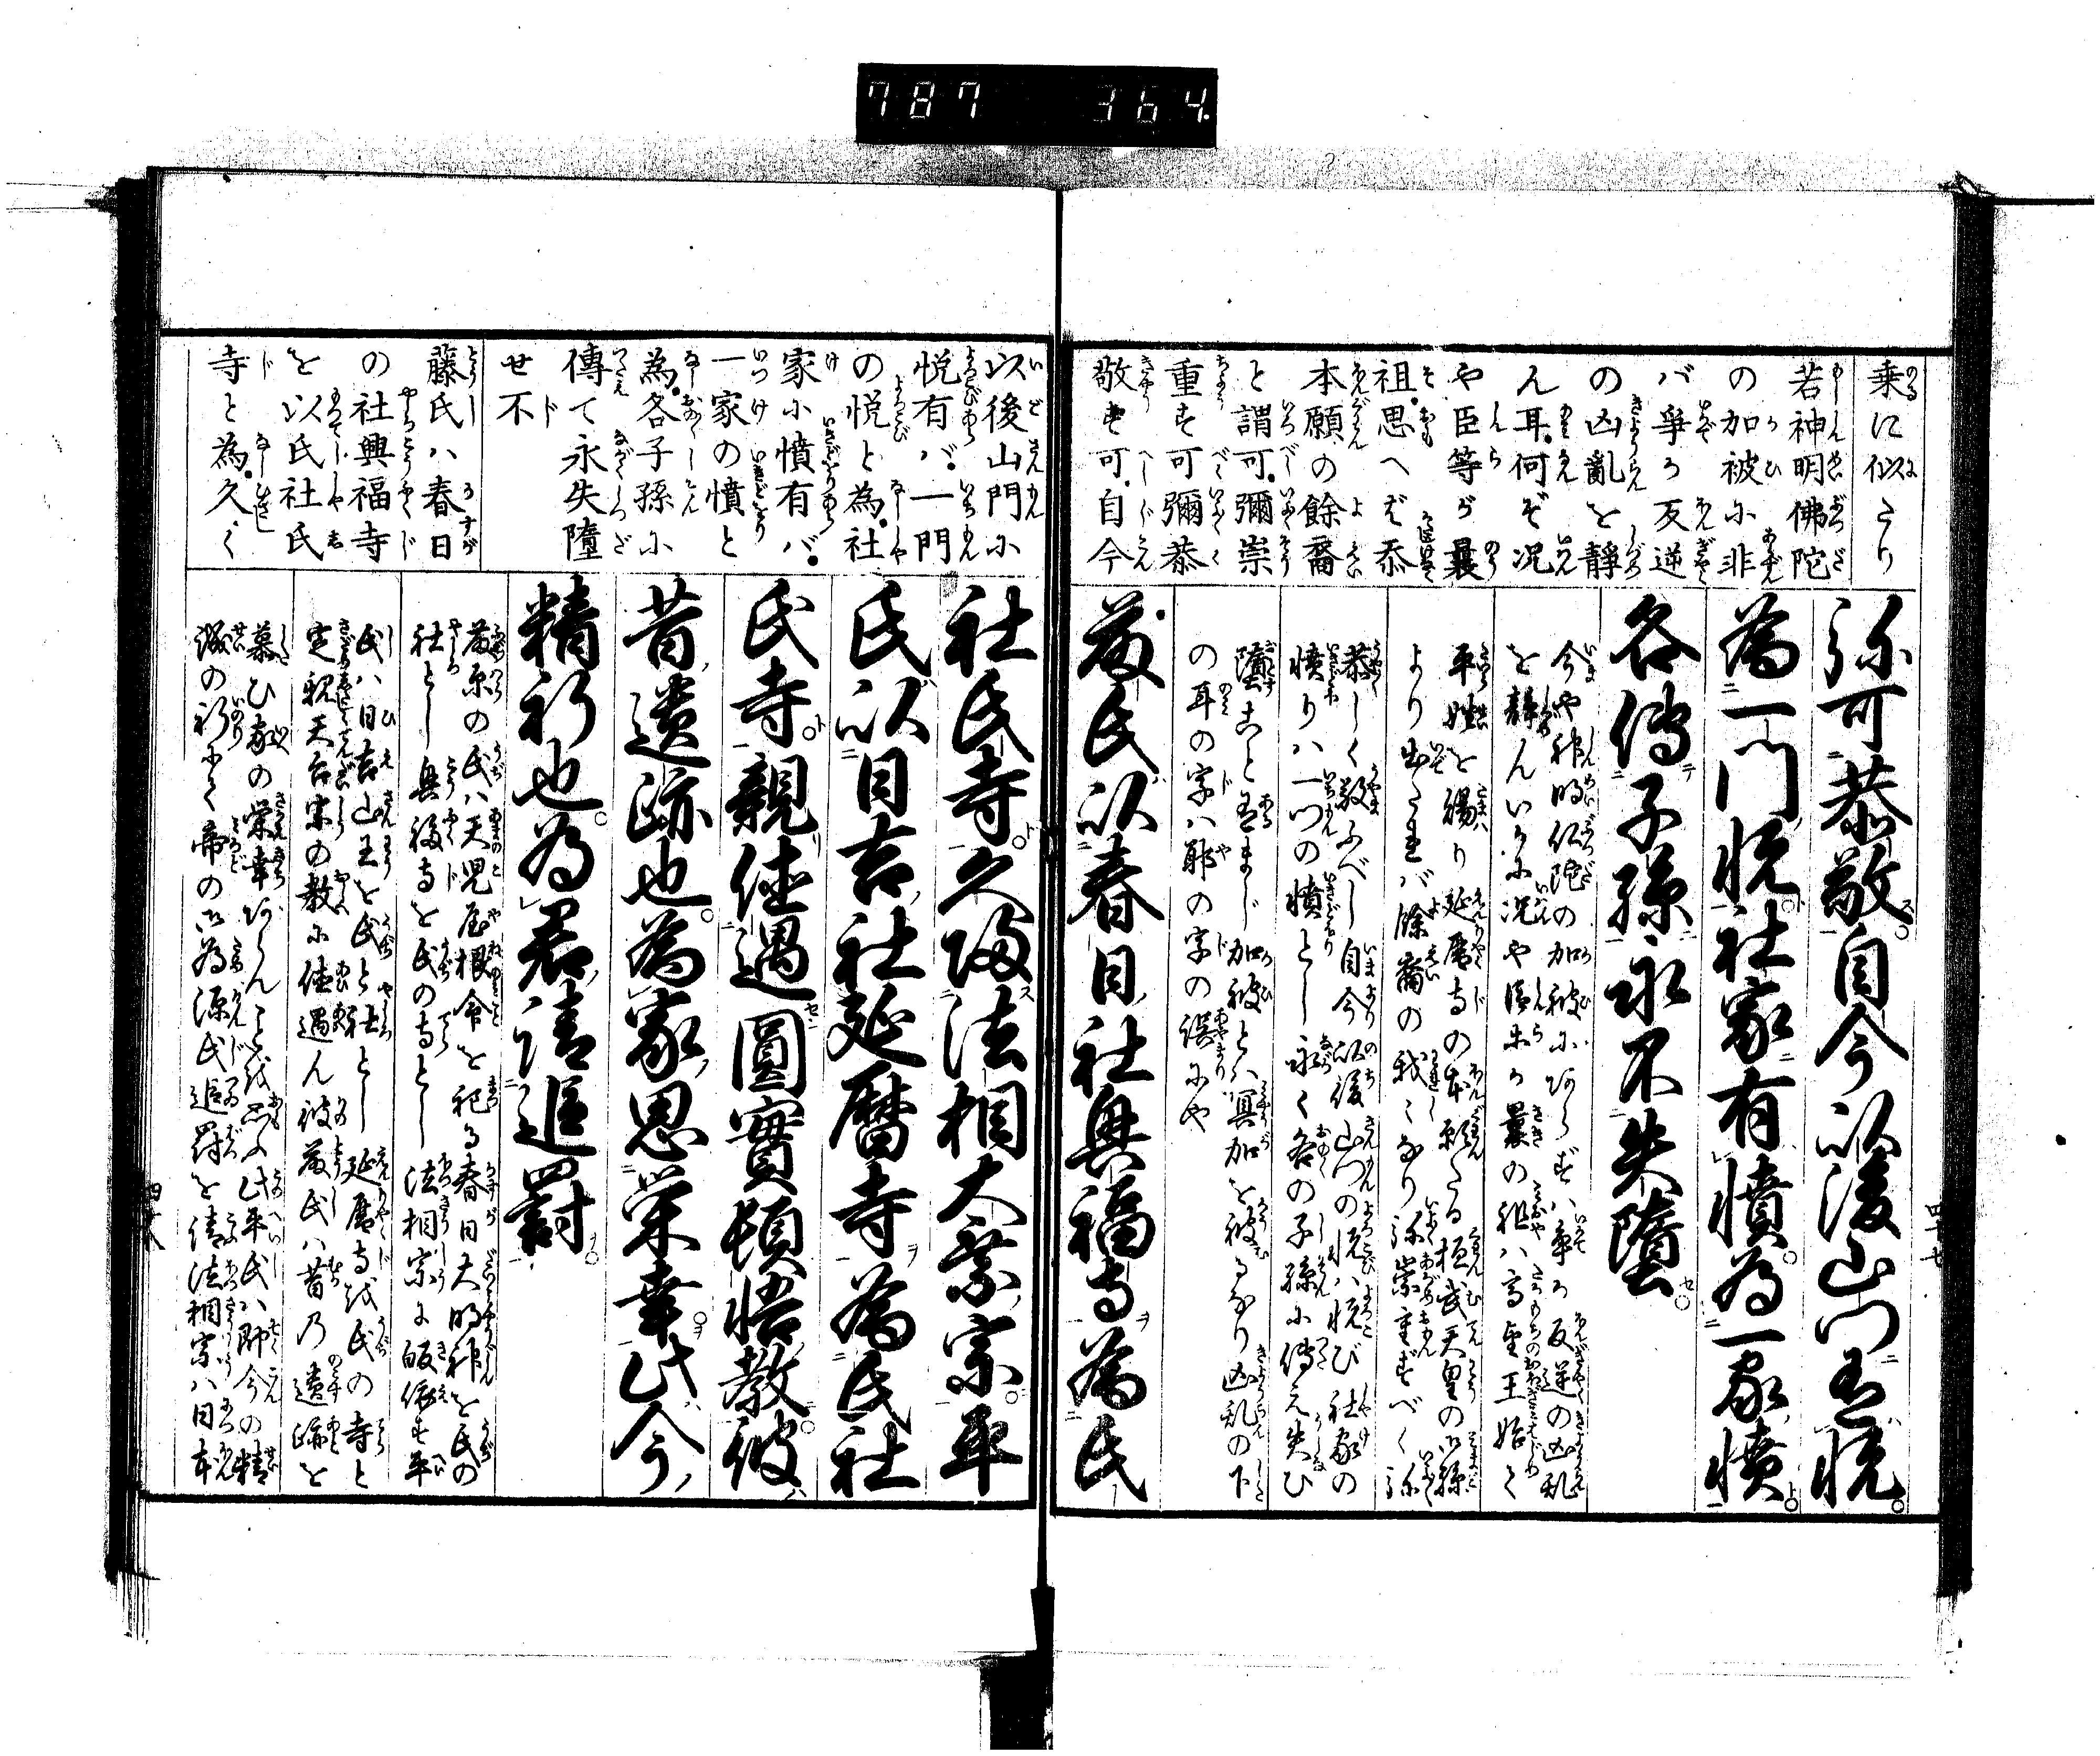 787 364.
乗に似たり
若神明佛陀
の加被に非
バ爭か反逆
の凶亂を靜
ん耳。何ぞ況
や臣等が曩
祖。思へバ忝
本願の餘裔
と謂可。彌崇
重す可彌恭
敬す可。自今
弥可恭敬。自今以後山门有悦。
為一门悦。社家有憤。為一家憤。
各傳子孫。永不失墮。
今や神明仏陀の加被にあらずハ争か反逆の凶乱
を静んいかに況や臣等が曩の祖ハ高望王始て
平姓を賜り延暦寺の本願たる桓武天皇の御孫
より出たれバ餘裔の我々なり弥崇重すべく弥
恭しく敬ふべし自今以後山门の悦ハ悦び社家の
憤りハ一门の憤とし永く各の子孫に傳え失ひ
墮すこと有まじ加被とハ冥加を被るなり凶乱の下
の耳の字ハ耶の字の誤にや
藤氏以春日社興福寺為氏
以後山門に
悦有バ。一門
の悦と為。社
家に憤有バ。
一家の憤と
為。各子孫に
傳て永失墮
せ不
藤氏ハ春日
の社興福寺
を以氏社氏
寺と為。久く
社氏寺。久帰法相大乗宗。平
氏以日吉社延暦寺為氏社
氏寺。親値遇圓實頓悟教。彼
昔遺跡也。為家思栄幸。此今
精祈也。為君請追罰。
藤原の氏ハ天児屋根命を祀る春日大明神を氏の
社とし興福寺を氏の寺とし法相宗に皈依す平
氏ハ日吉山王を氏と社とし延暦寺を氏の寺と
定親天台宗の教に値遇ん彼藤氏ハ昔乃遺跡を
慕ひ家の栄幸あらんことを思ふ此平氏ハ即今の精
誠の祈にて帝の御為源氏追罰を請法相宗ハ日本